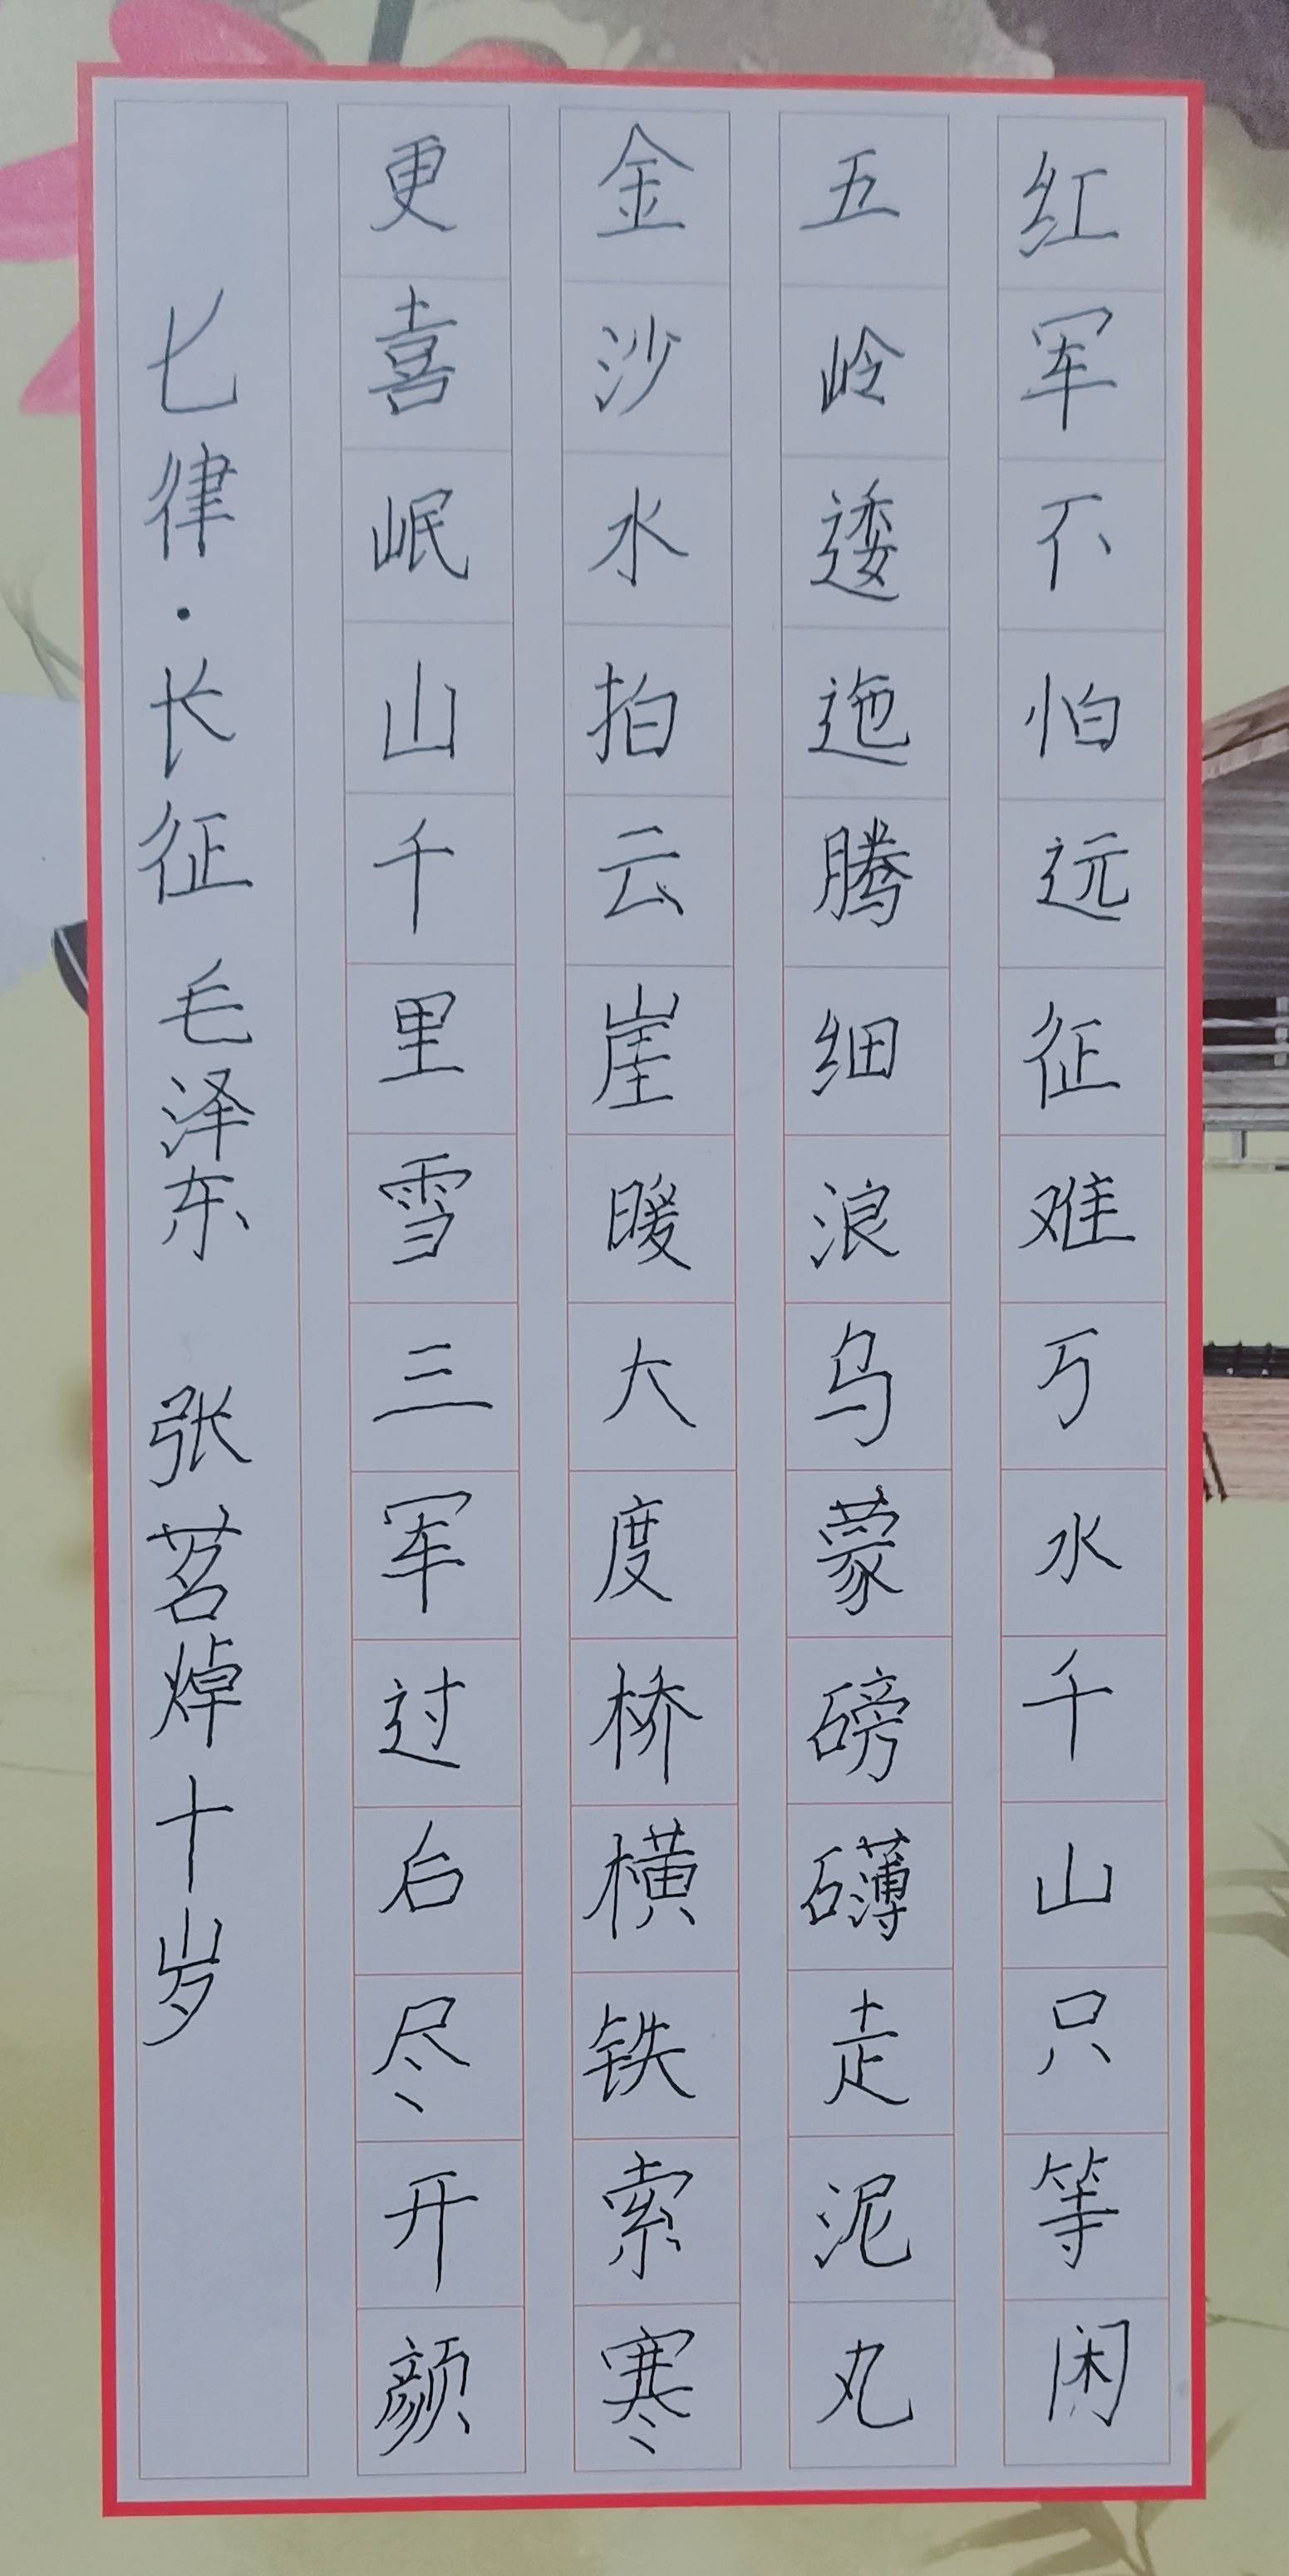 红军不怕远征难万水千山只等闲
五岭逶迤腾细浪乌蒙磅礴走泥丸
金沙水拍云崖暖大度桥横铁索寒
更喜岷山千里雪三军过后尽开颜
七律·长征 毛泽东 张茗焯十岁